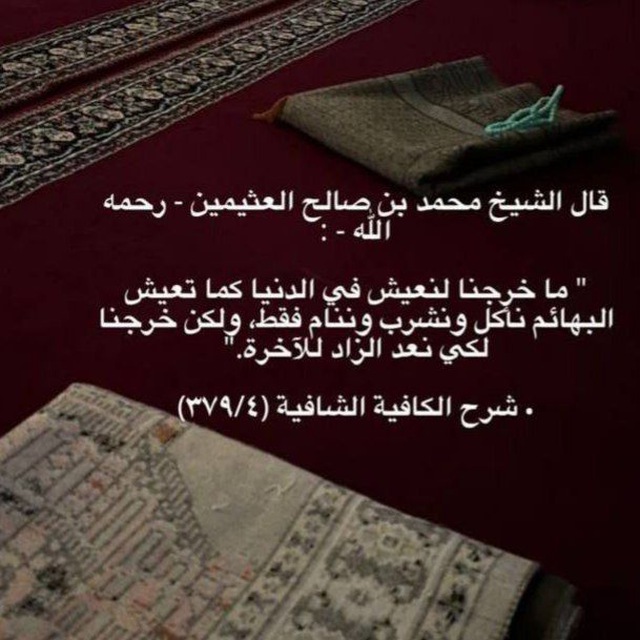 قال الشيخ محمد بن صالح العثيمين - رحمه
الله - :
" ما خرجنا لنعيش في الدنيا كما تعيش
البهائم نأكل ونشرب وننام فقط، ولكن خرجنا
لكي نعد الزاد للآخرة."
• شرح الكافية الشافية (٣٧٩/٤)